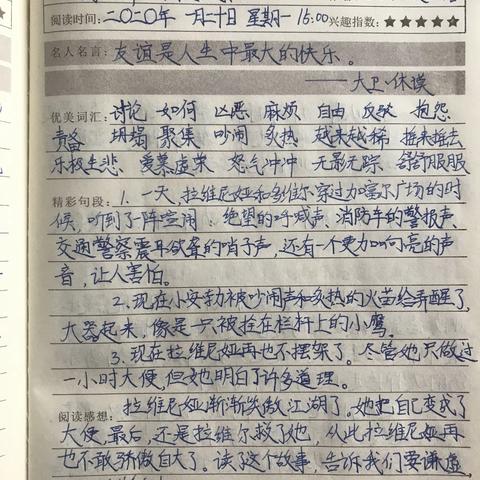 阅读时间：二〇二〇年 一月二十日 星期一 15:00 兴趣指数：★★★★★
名人名言：友谊是人生中最大的快乐。
——大卫·休谟
优美词汇：讨论 如何 凶恶 麻烦 自由 反驳 抱怨
责备 坍塌 聚集 吵闹 炙热 越来越稀 摇来摇去
乐极生悲 爱慕虚荣 怒气冲冲 无影无踪 舒舒服服
精彩句段：1.一天，拉维尼娅和多维尔穿过加富尔广场的时
候，听到了一阵喧闹：绝望的呼喊声、消防车的警报声、
交通警察震耳欲聋的哨子声，还有一个更加响亮的声
音，让人害怕。
2.现在小安勃被吵闹声和炙热的火苗给弄醒了，
大哭起来，像是一只被拴在栏杆上的小鹰。
3.现在拉维尼娅再也不摆架了。尽管她只做过
一小时大便，但她明白了许多道理。
阅读感想：拉维尼娅渐渐笑傲江湖了。她把自己变成了
大便，最后，还是拉维尔救了她，从此拉维尼娅再
也不敢骄傲自大了。读了这个故事，告诉我们要谦虚，